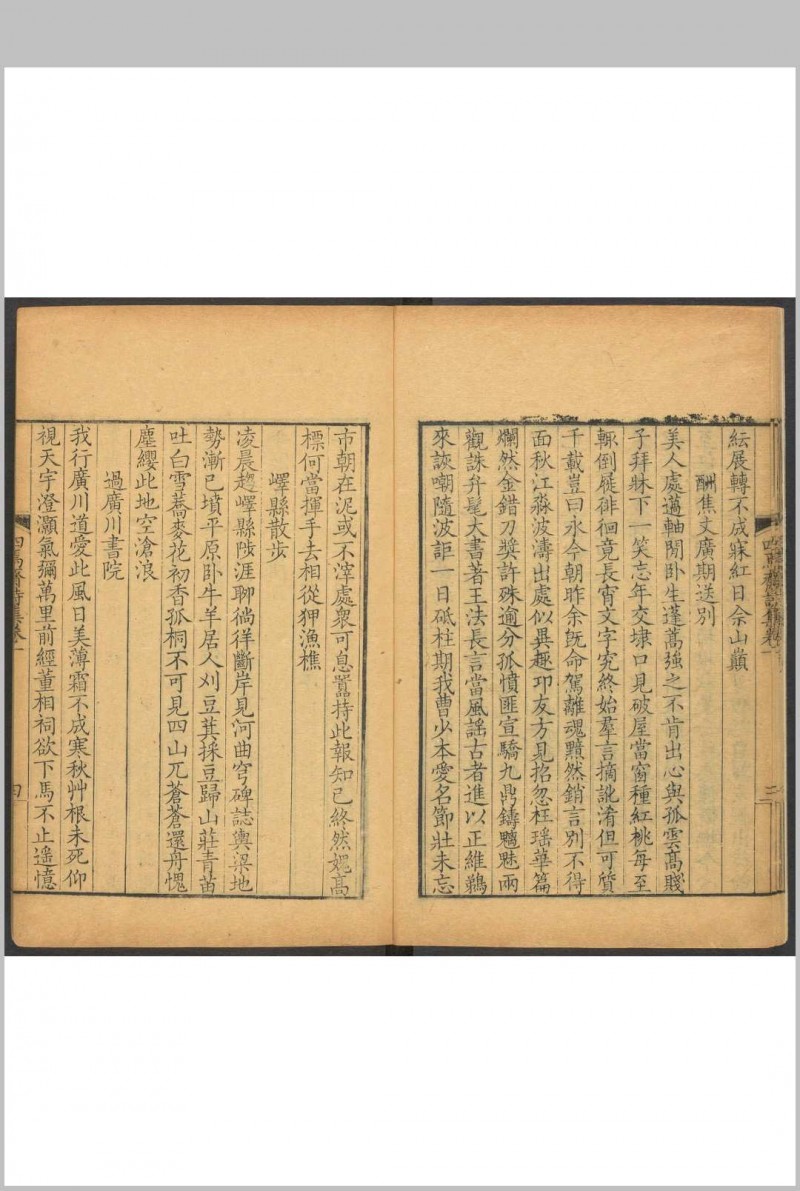 紜展轉不成寐紅日佘山巔
酬焦丈廣期送別
美人處薖軸閒卧生蓬蒿強之不肯出心與孤雲高賤
子拜牀下一笑忘年交埭口見破屋當窗種紅桃每至
輒倒屣徘徊竟長宵文字究終始羣言摘訛淆但可質
千載豈曰永今朝昨余旣命駕離魂黯然銷言別不得
面秋江淼波濤出處似異趣卭友方見招忽枉瑶華篇
爛然金錯刀奬許殊逾分孤憤匪宣驕九鼎鑄魑魅兩
觀誅升髦大書著王法長言當風謡古者進以正維鵜
來誒嘲隨波詎一日砥柱期我曹少本愛名節壯未忘
市朝在泥或不滓處衆可息囂持此報知已終然媿高
標何當揮手去相從狎漁樵
嶧縣散步
凌晨趨嶧縣陟涯聊徜徉斷岸見河曲穹碑誌輿梁地
勢漸已墳平原卧牛羊居人刈豆萁採豆歸山莊青苗
吐白雪蕎麥花初香孤桐不可見四山兀蒼蒼還舟愧
塵纓此地空滄浪
過廣川書院
我行廣川道愛此風日美薄霜不成寒秋艸根未死仰
視天宇澄灝氣彌萬里前經董相祠欲下馬不止遥憶
四焉齋詩集卷一
四